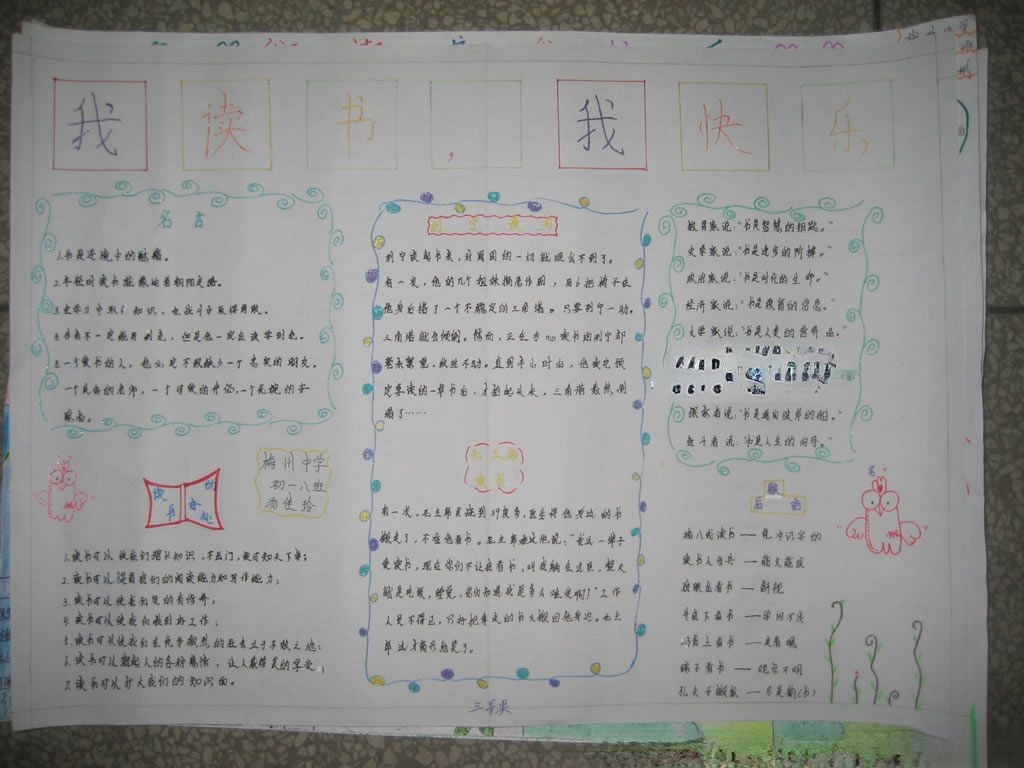 我读书,我快乐
名言
1.书是逆境中的慰藉。
2.年轻时读书就像迎着朝阳走路。
3.在学习中取得知识,也战斗中取得勇敢。
一个良善的老师,一个可爱的伴侣,一个优婉的安
慰者。
读书的好处
梅州中学
初一八班
汤佳玲
1.读书可以使我们增长知识,不出门,便可知天下事;
2.读书可以提高我们的阅读能力和写作能力;
3.读书可以使我们变的有修养;
4.读书可以使我们找到好工作;
5.读书可以使我们在竞争激烈的社会立于不败之地;
6.读书可以激起人的各种感情,让人获得美的享受;
7.读书可以扩大我们的知识面。
列宁读书
列宁读起书来,对周围的一切就理会不到了。
有一次,他的几个姐妹搞恶作剧,用6把椅子在
他身后搭了一个不稳定的三角塔。只要列宁一动,
三角塔就会倾倒。然而,正在专心读书的列宁却
毫未察觉,纹丝不动。直到半小时后,他读完预
定要读的一章书后,才抬起头来,三角塔轰然倒
塌了……
毛主席
读书
有一次,毛主席发烧到39度多,医生将他身边的书
搬走了,不准他看书。毛主席难过地说:“我这一辈子
爱读书,现在你们不让我看书,叫我躺在这里,整天
就是吃饭,睡觉,你们知道我是多么难受啊!”工作
人员不得已,只好把拿走的书又搬回他身边,毛主
席这才高兴地笑了。
教育家说:“书是智慧的钥匙。”
史学家说:“书是进步的阶梯。”
政治家说:“书是时代的生命。”
经济家说:“书是致富的信息。”
文学家说:“书是人类的营养品。”
探索者说:“书是通向彼岸的船。”
奋斗者说:“书是人生的向导。”
歇
后语
猪八戒读书——冒充识字的
读书人当兵——能文能武
独眼龙看书——斜视
井底下看书——学问不浅
马背上看书——走着瞧
瞎子看书——观点不明
孔夫子搬家——尽是输(书)
三等奖